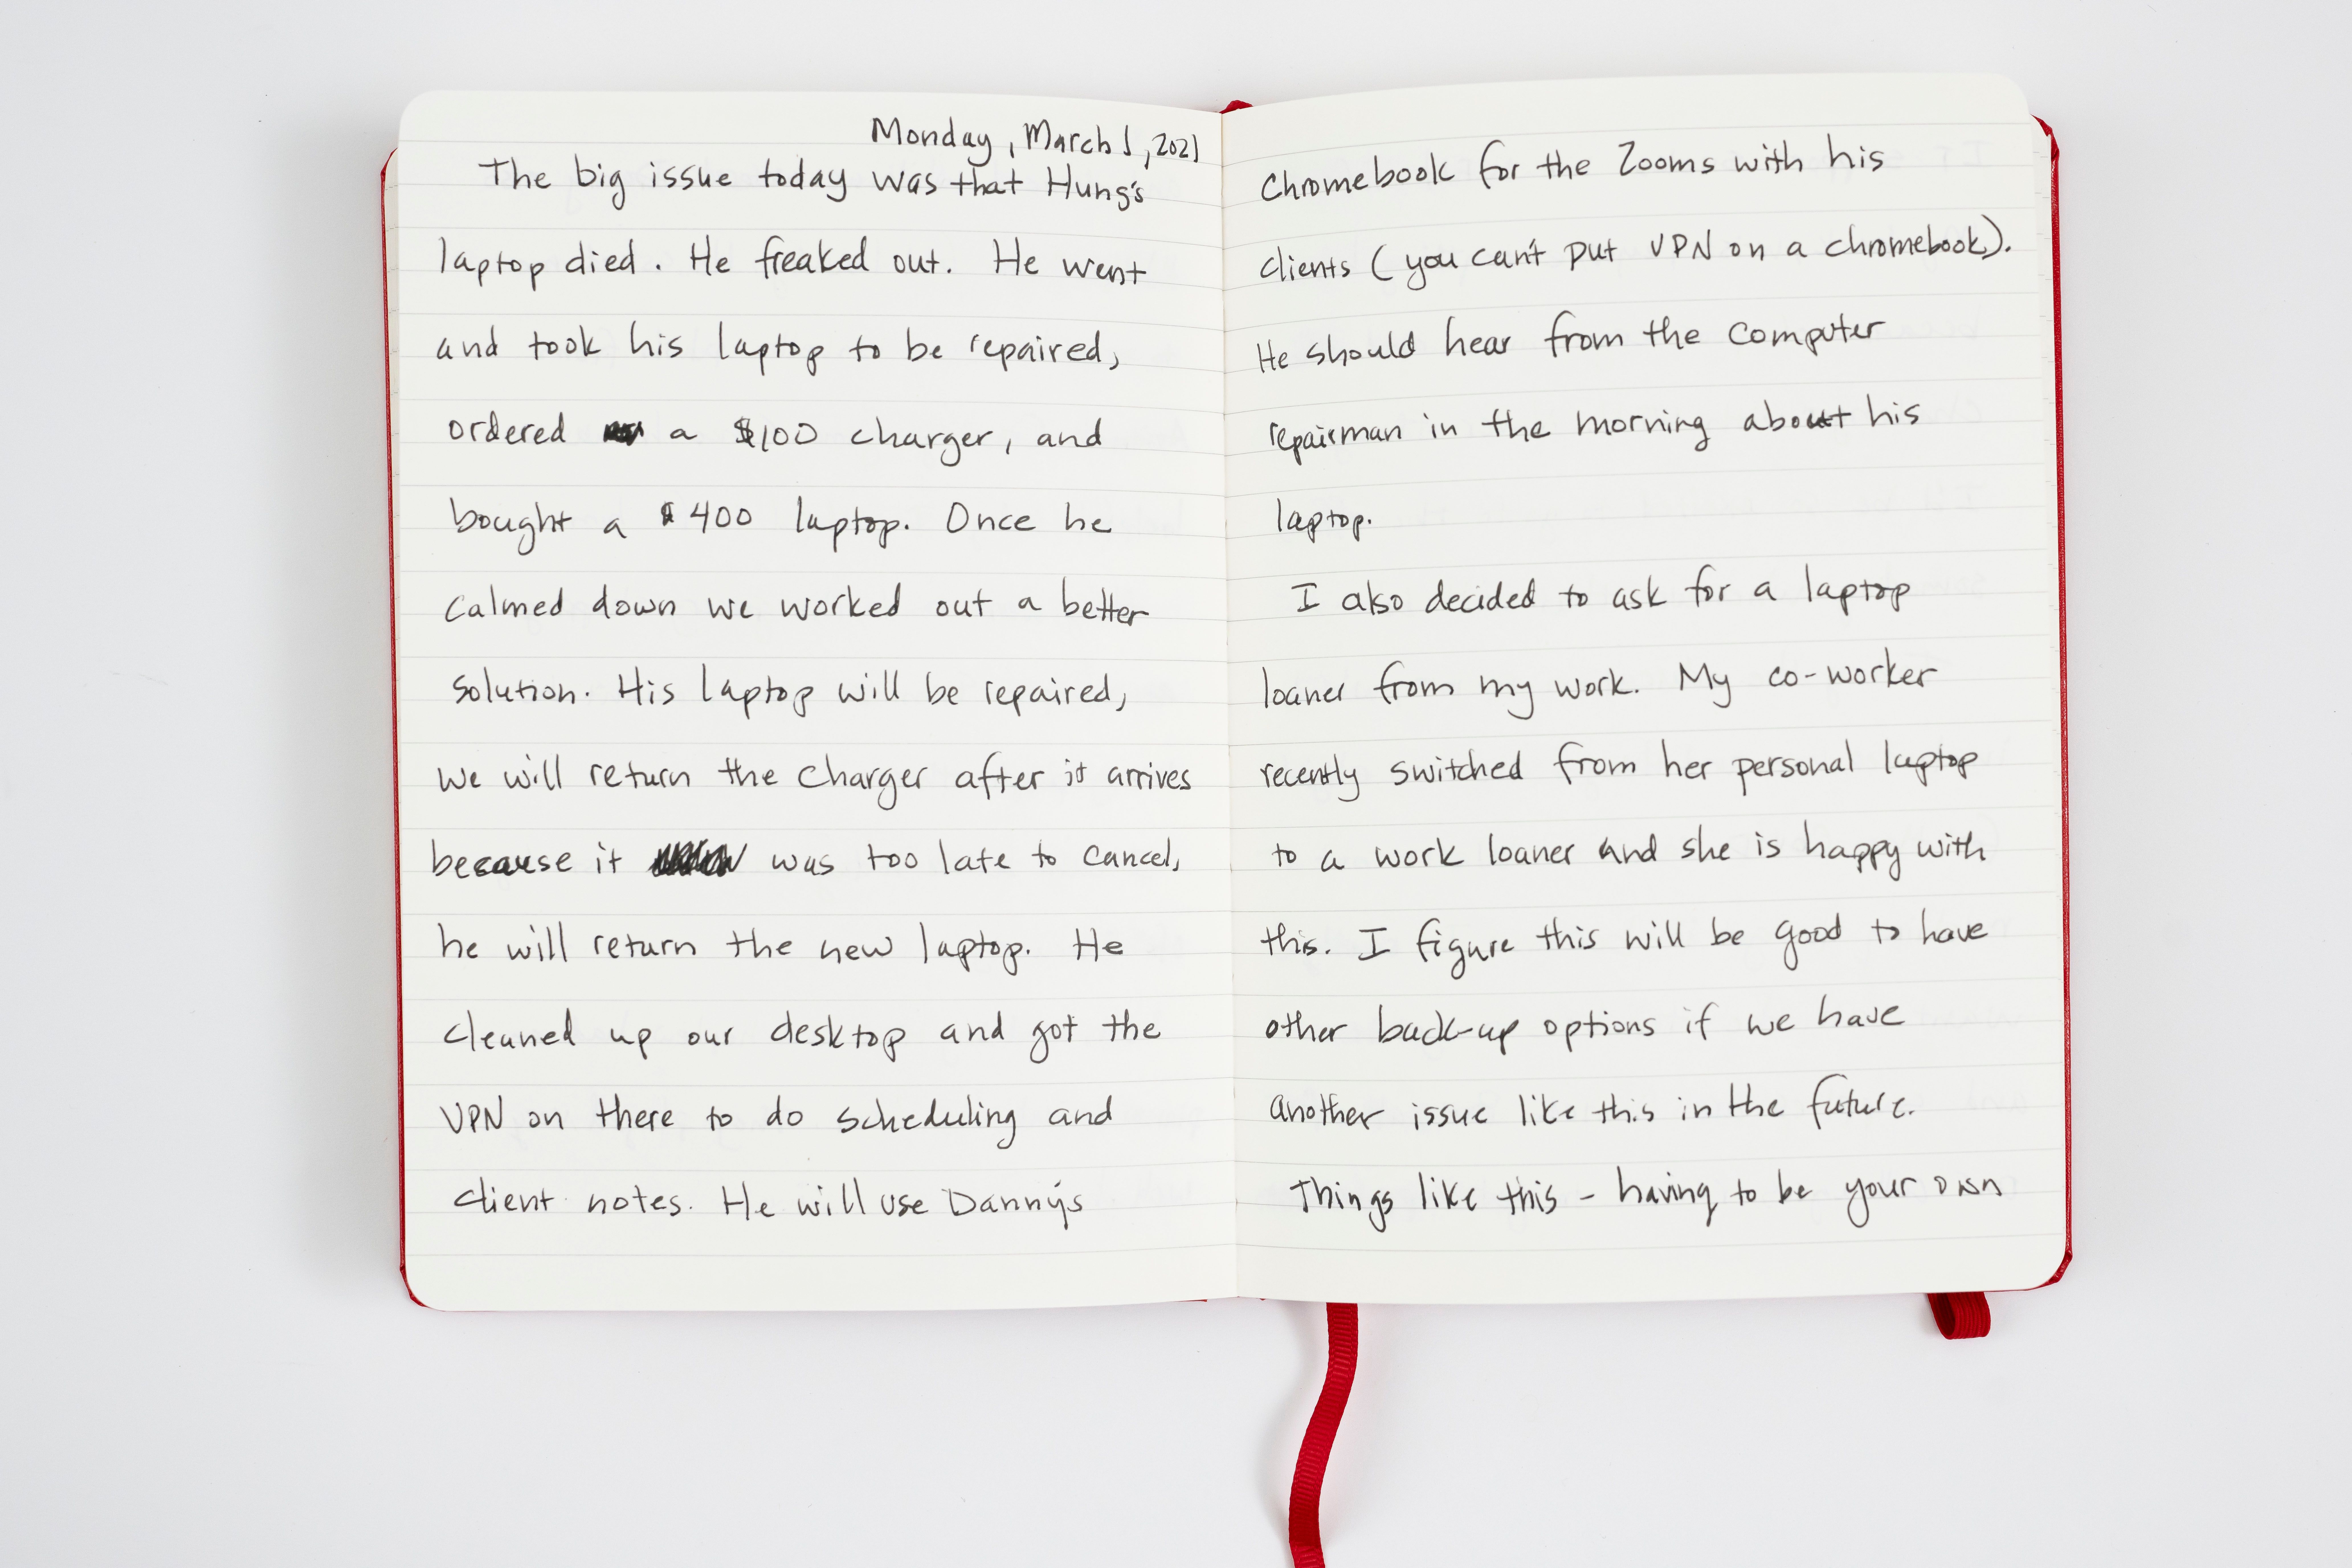 Monday, March 1, 2021
The big issue today was that Hung's
laptop died. He freaked out. He went
and took his laptop to be repaired,
ordered a $100 charger, and
bought a $400 laptop. Once he
calmed down we worked out a better
solution. His laptop will be repaired,
we will return the charger after it arrives
because it was too late to cancel,
he will return the new laptop. He
cleaned up our desktop and got the
VPN on there to do scheduling and
client notes. He will use Danny's
Chromebook for the Zooms with his
clients (you can't put VPN on a chromebook).
He should hear from the computer
repairman in the morning about his
laptop.
I also decided to ask for a laptop
loaner from my work. My co-worker
recently switched from her personal laptop
to a work loaner and she is happy with
this. I figure this will be good to have
other back-up options if we have
another issue like this in the future.
Things like this - having to be your own